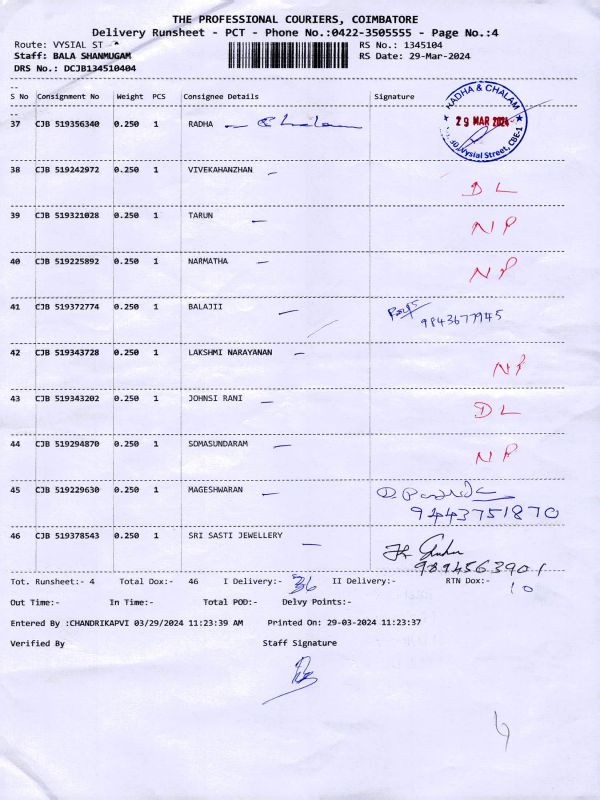 THE PROFESSIONAL COURIERS, COIMBATORE
Delivery Runsheet - PCT - Phone No.:0422-3505555 - Page No.:4
Route: VYSIAL ST * RS No.: 1345104
Staff: BALA SHANMUGAM RS Date: 29-Mar-2024
DRS No.: DCJB134510404
S No Consignment No Weight PCS Consignee Details Signature
37 CJB 519356340 0.250 1 RADHA - Chalam
RADHA & CHALAM
29 MAR 2024
Vysial Street, CBE-1
38 CJB 519242972 0.250 1 VIVEKAHANZHAN - DL
39 CJB 519321028 0.250 1 TARUN - NP
40 CJB 519225892 0.250 1 NARMATHA - NP
41 CJB 519372774 0.250 1 BALAJII - 9843677945
42 CJB 519343728 0.250 1 LAKSHMI NARAYANAN - NP
43 CJB 519343202 0.250 1 JOHNSI RANI - DL
44 CJB 519294870 0.250 1 SOMASUNDARAM - NP
45 CJB 519229630 0.250 1 MAGESHWARAN -
9443751870
46 CJB 519378543 0.250 1 SRI SASTI JEWELLERY -
9894563901
Tot. Runsheet:- 4 Total Dox:- 46 I Delivery:- 36 II Delivery:- RTN Dox:- 10
Out Time:- In Time:- Total POD:- Delvy Points:-
Entered By :CHANDRIKAPVI 03/29/2024 11:23:39 AM Printed On: 29-03-2024 11:23:37
Verified By Staff Signature